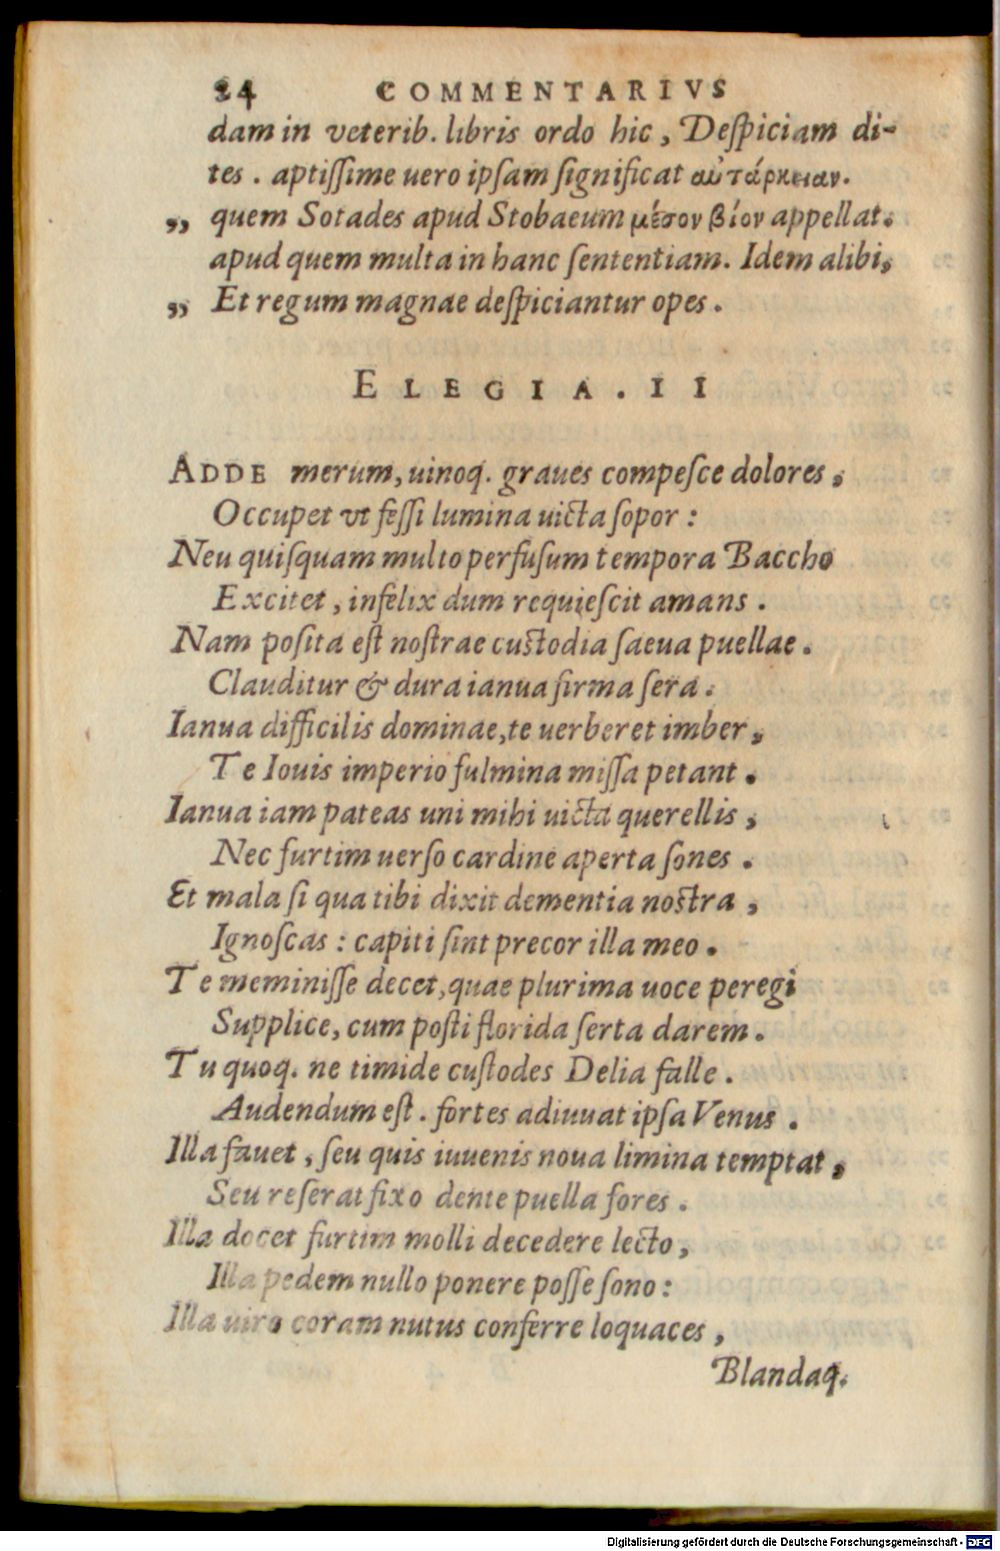 24 COMMENTARIVS
dam in veterib. libris ordo hic, Deſpiciam di-
tes. aptiſſime uero ipſam ſignificat αὐτάρκειαν.
„ quem Sotades apud Stobaeum μέσον βίον appellat.
apud quem multa in hanc ſententiam. Idem alibi,
„ Et regum magnae deſpiciantur opes.
ELEGIA. II
ADDE merum, uinoq. graues compeſce dolores,
Occupet vt feſſi lumina uicta ſopor:
Neu quiſquam multo perfuſum tempora Baccho
Excitet, infelix dum requieſcit amans.
Nam poſita eſt noſtrae cuſtodia ſaeua puellae.
Clauditur & dura ianua firma ſera.
Ianua difficilis dominae, te uerberet imber,
Te Iouis imperio fulmina miſſa petant.
Ianua iam pateas uni mihi uicta querellis,
Nec furtim uerſo cardine aperta ſones.
Et mala ſi qua tibi dixit dementia noſtra,
Ignoſcas: capiti ſint precor illa meo.
Te meminiſſe decet, quae plurima uoce peregi
Supplice, cum poſti florida ſerta darem.
Tu quoq. ne timide cuſtodes Delia falle.
Audendum eſt. fortes adiuuat ipſa Venus.
Illa fauet, ſeu quis iuuenis noua limina temptat,
Seu reſerat fixo dente puella fores.
Illa docet furtim molli decedere lecto,
Illa pedem nullo ponere poſſe ſono:
Illa uiro coram nutus conferre loquaces,
Blandaq.
Digitalisierung gefördert durch die Deutsche Forschungsgemeinschaft - DFG